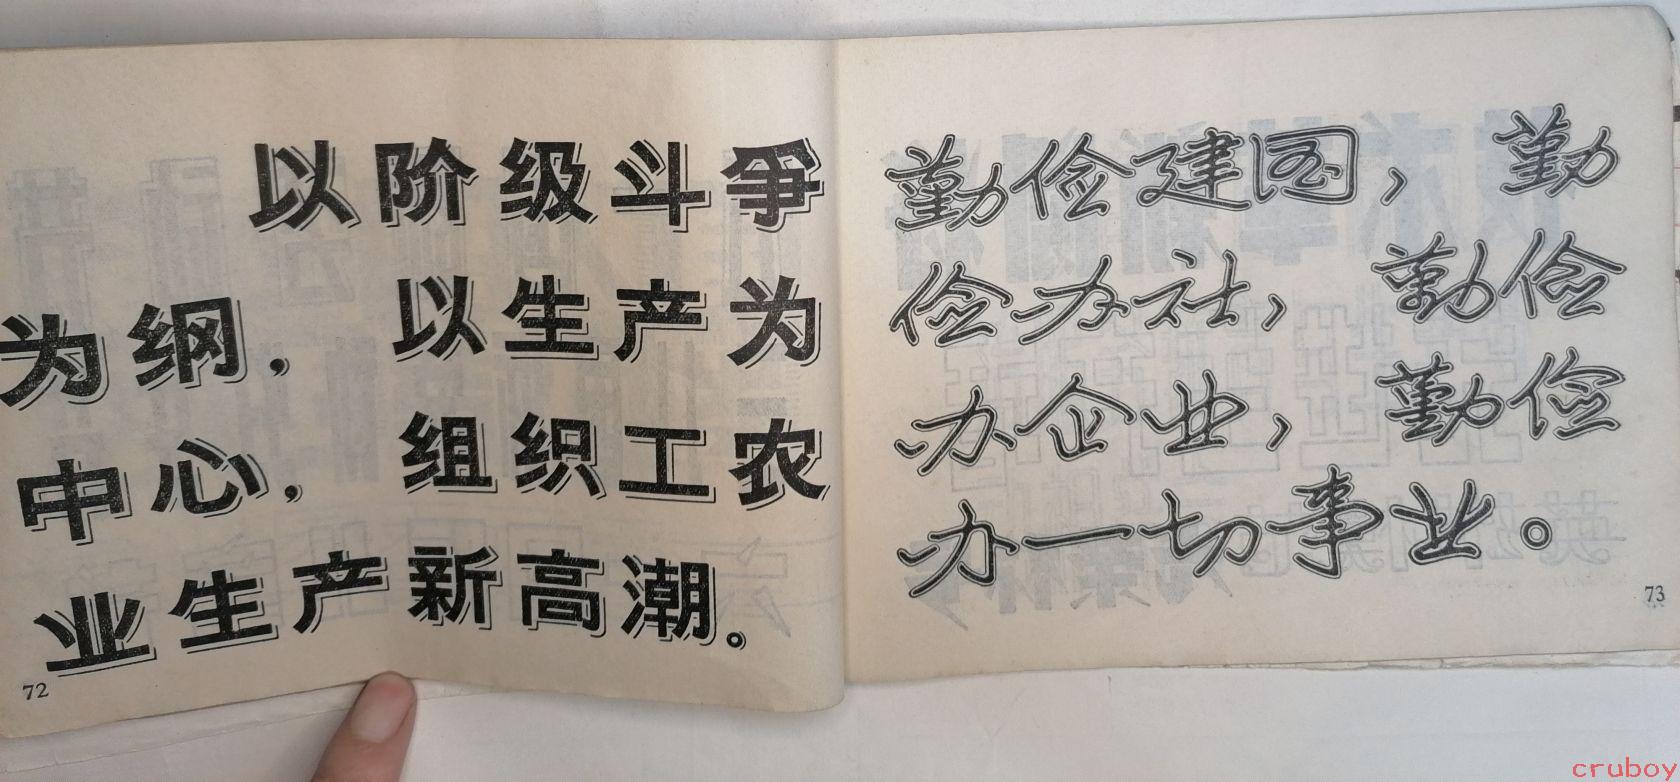 以阶级斗争
为纲，以生产为
中心，组织工农
业生产新高潮。
72
勤俭建国，勤
俭办社，勤俭
办企业，勤俭
办一切事业。
73
cruboy